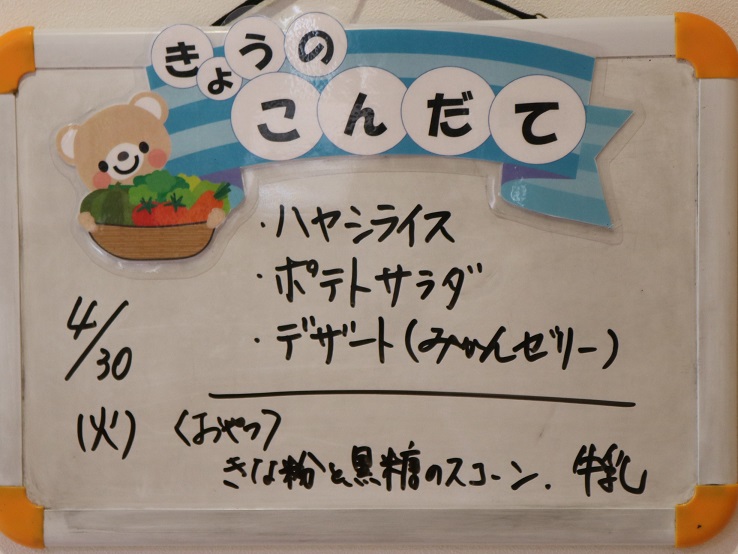 きょうの
こんだて
・ハヤシライス
・ポテトサラダ
・デザート(みかんゼリー)
4/30
(火)
〈おやつ〉
きな粉と黒糖のスコーン、牛乳